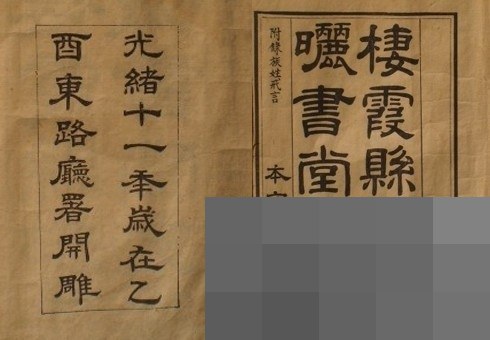 棲霞縣
曬書堂
附錄族姓戒言
本
光緒十一秊歲在乙
酉東路廳署開雕